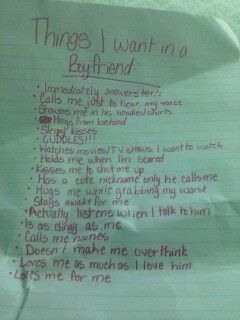 Things I want in a
Boyfriend:
• Immediately answers
• Calls me just to hear my voice
• Showers me in his hoodies/shirts
• Hugs from behind
• Sleepy kisses
• CUDDLES!!!!
• Watches movies/TV shows I want to watch
• Holds me when I'm scared
• Kisses me to shut me up
• Has a cute nickname only he calls me
• Hugs me while grabbing my waist
• Stays awake for me
• Actually listens when I talk to him
• Is as clingy as me
• Calls me names
• Doesn't make me overthink
• Loves me as much as I love him
• Loves me for me